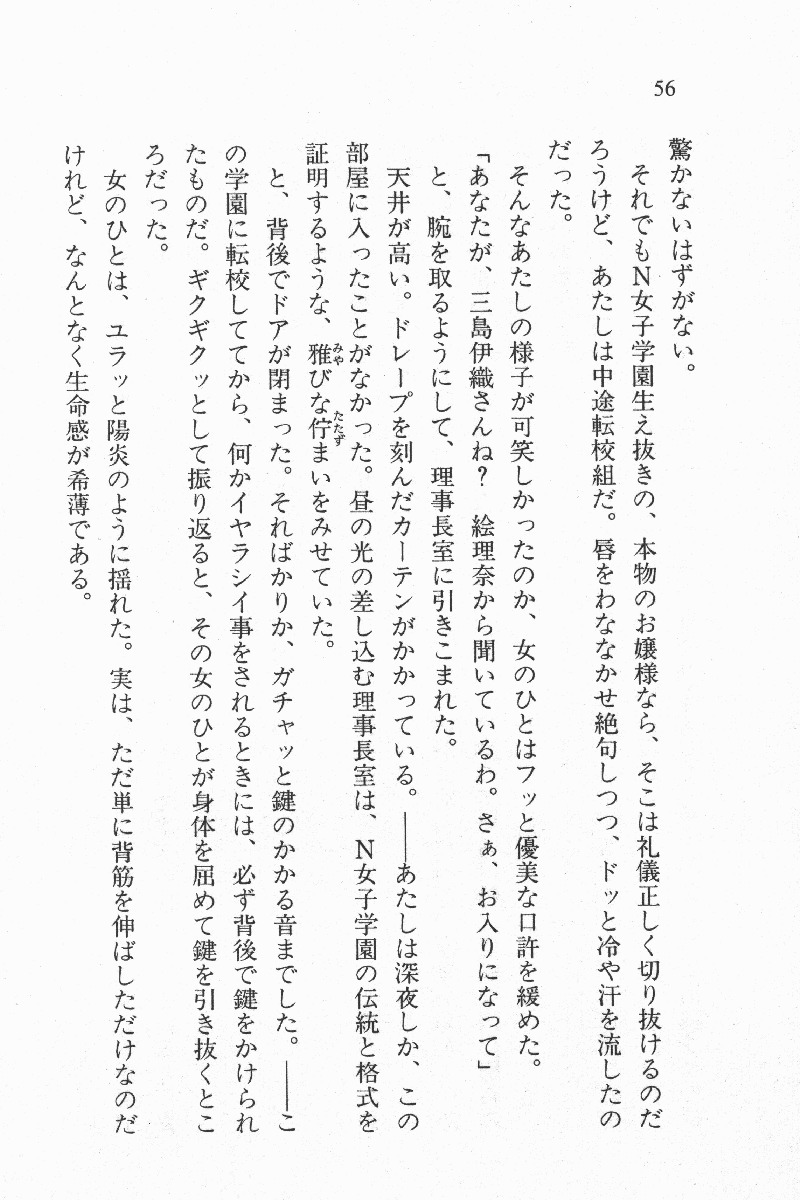 56
驚かないはずがない。
それでもN女子学園生え抜きの、本物のお嬢様なら、そこは礼儀正しく切り抜けるのだ
ろうけど、あたしは中途転校組だ。唇をわななかせ絶句しつつ、ドッと冷や汗を流したの
だった。
そんなあたしの様子が可笑しかったのか、女のひとはフッと優美な口許を緩めた。
「あなたが、三島伊織さんね？　絵理奈から聞いているわ。さぁ、お入りになって」
と、腕を取るようにして、理事長室に引きこまれた。
天井が高い。ドレープを刻んだカーテンがかかっている。――あたしは深夜しか、この
部屋に入ったことがなかった。昼の光の差し込む理事長室は、N女子学園の伝統と格式を
証明するような、雅びな佇まいをみせていた。
みや
たたず
と、背後でドアが閉まった。そればかりか、ガチャッと鍵のかかる音までした。――こ
の学園に転校してから、何かイヤラシイ事をされるときには、必ず背後で鍵をかけられ
たものだ。ギクギクッとして振り返ると、その女のひとが身体を屈めて鍵を引き抜くとこ
ろだった。
女のひとは、ユラッと陽炎のように揺れた。実は、ただ単に背筋を伸ばしただけなのだ
けれど、なんとなく生命感が希薄である。